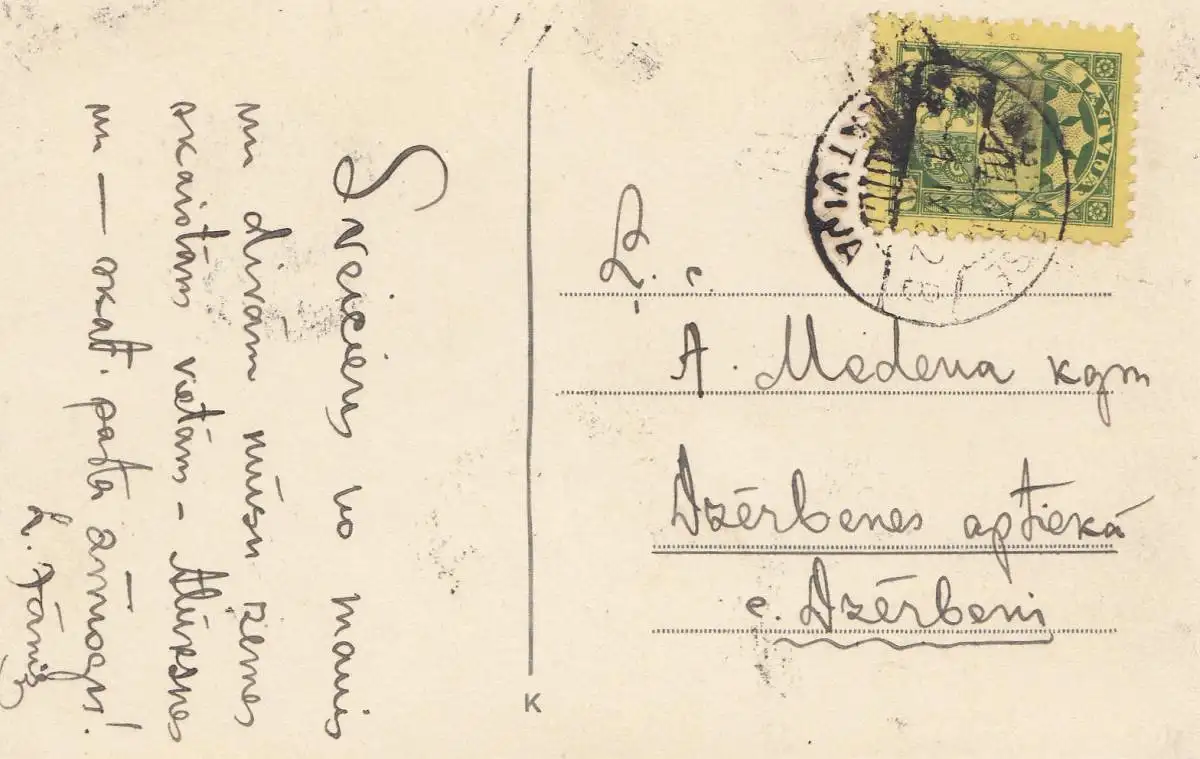 Sveiciens no manis
un divām mūsu zemes
skaistām vietām - Alūksnes
un — skat. pasta zīmogu!
L. Jānis
LATVIJA
LATVIJA
A. Medena kgm
Dzērbenes aptiekā
c. Dzērbeni
K